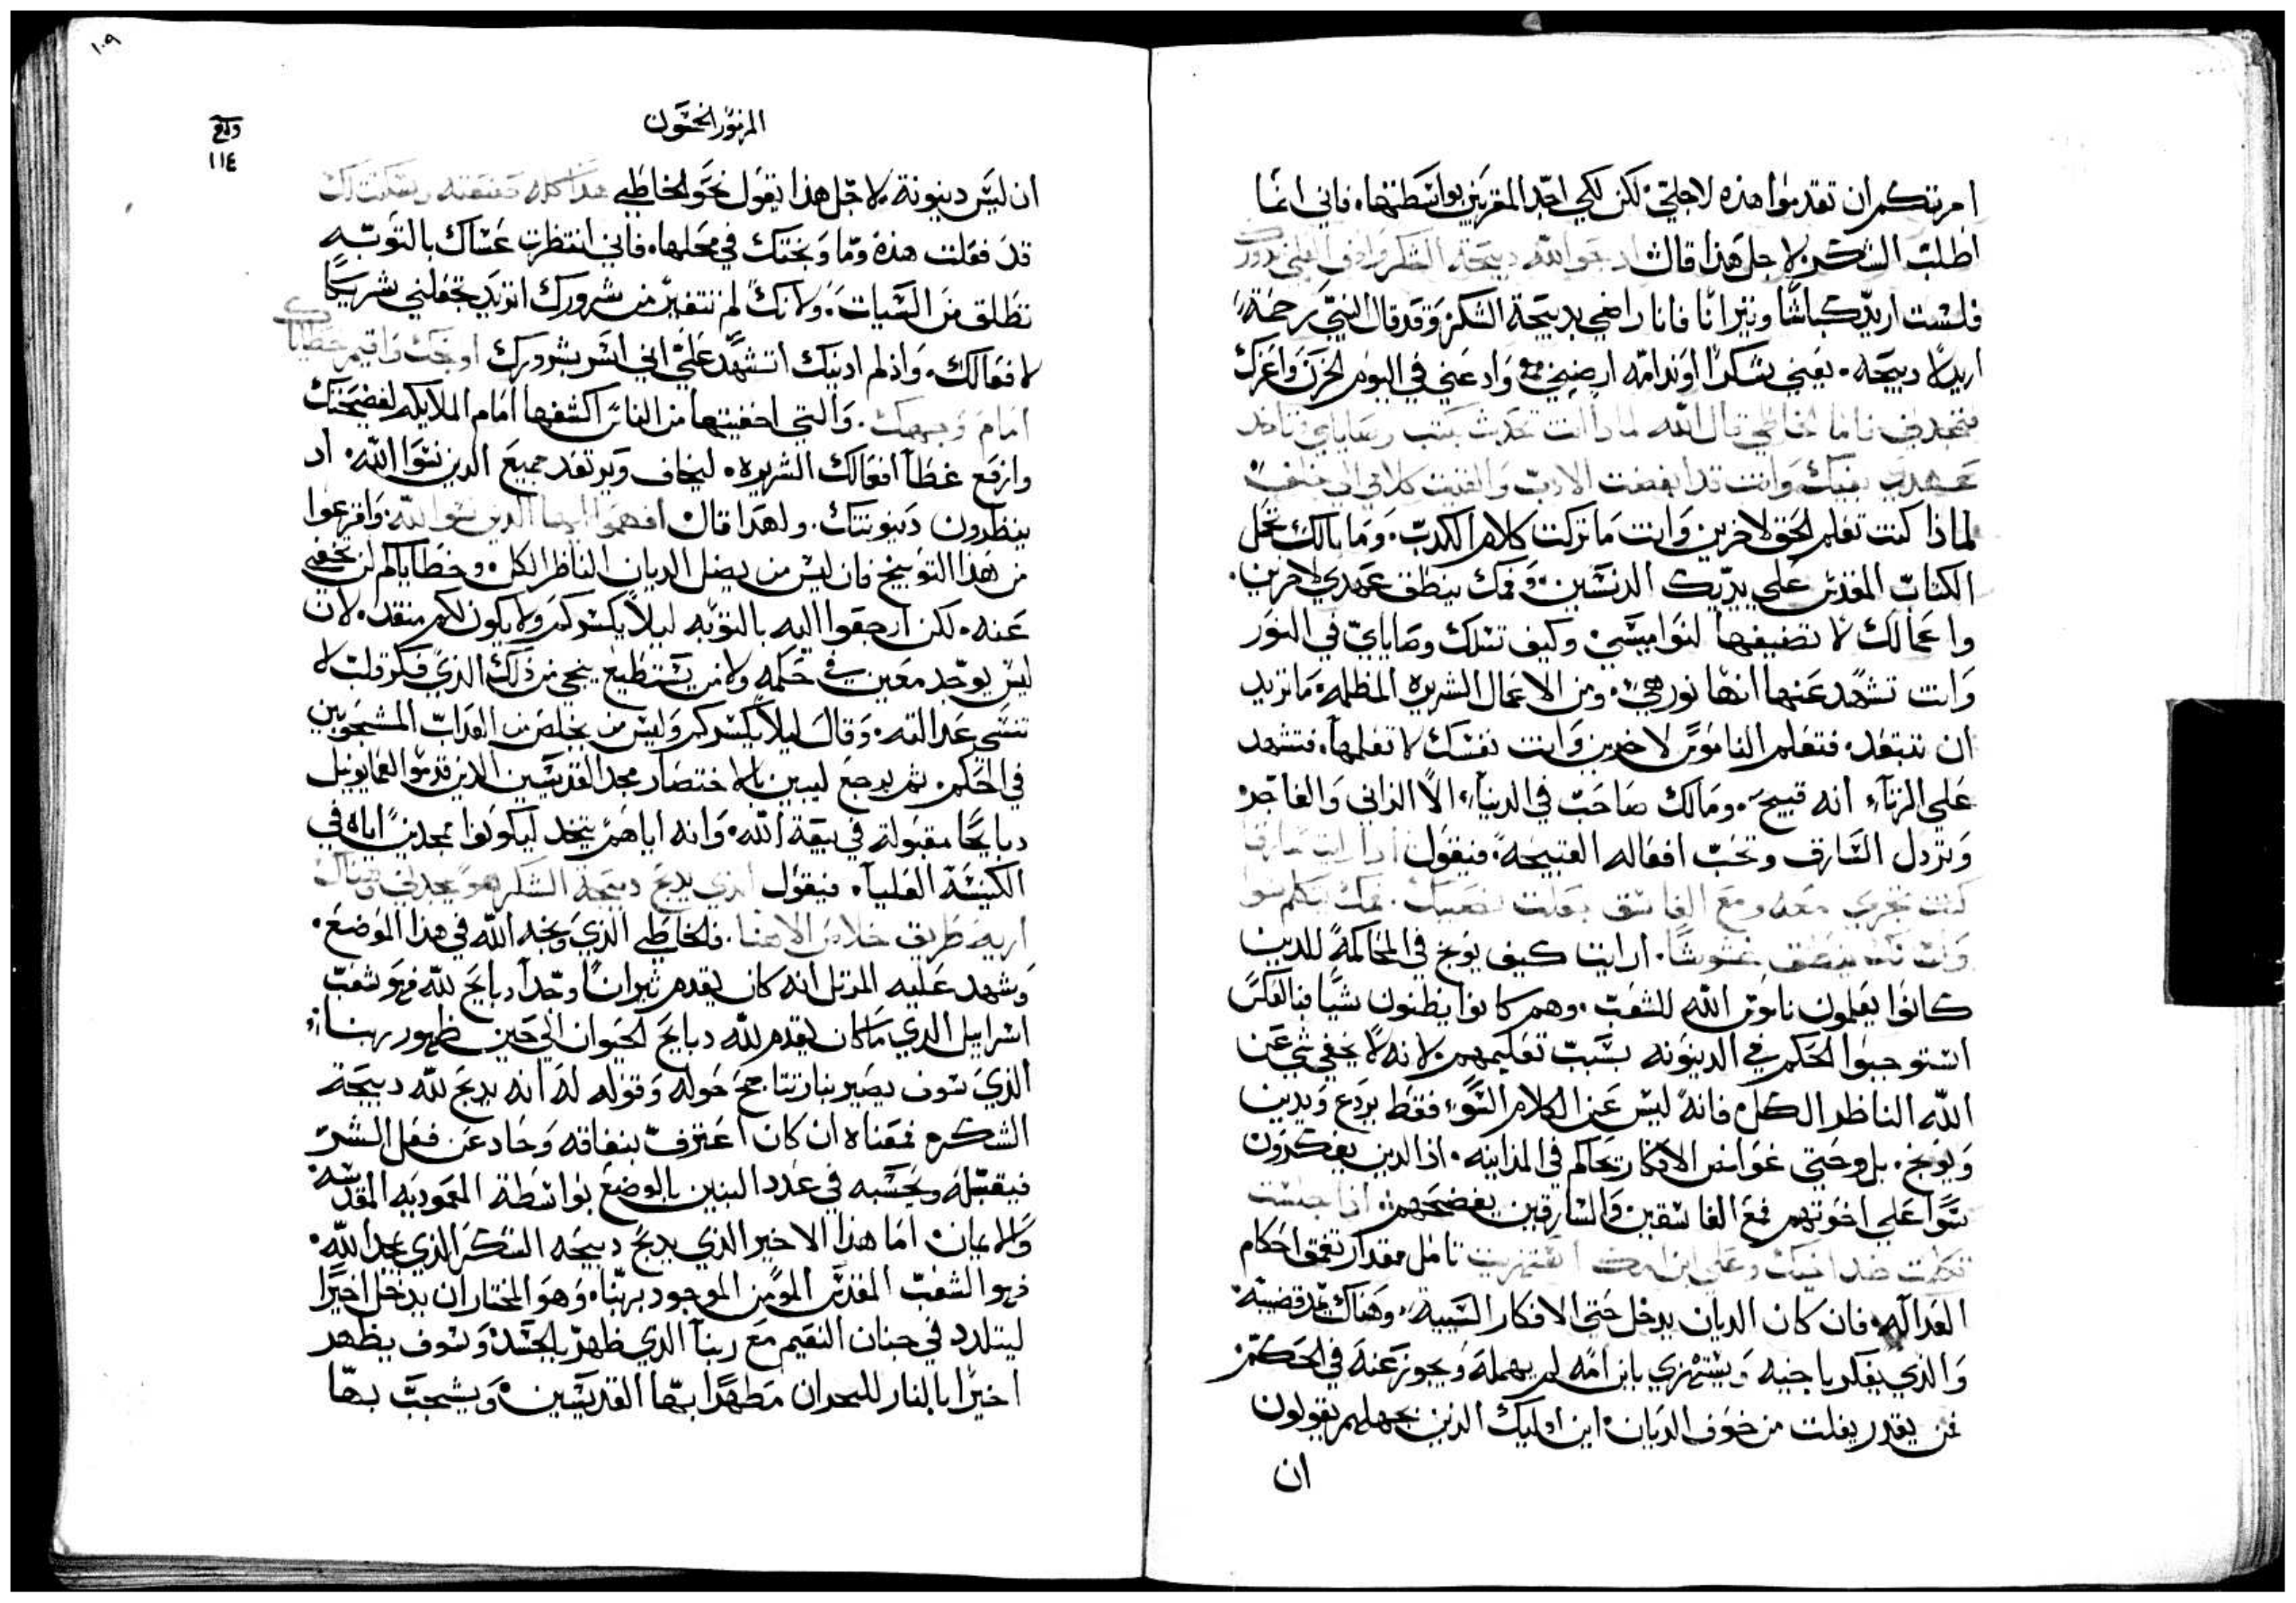 امرتكم ان تقدموا هذه لاجلي. لكن لكي اجد المقربين بواسطتها. فاني انما
اطلب الشكر. لاجل هذا قال ادبحو الله دبيحة الشكر واوفي العلي ندورك
فلست اريد كباشًا وتيرانًا فانا راضي بدبيحة الشكر وقد قال النبي رحمة
اريد لا دبيحه. يعني شكرًا وندامه ارضيني وادعني في اليوم الحزن واعزك
فتمجدني فاما الخاطي قال الله لمادا انت تحدث بكتب وصاياي وتاخد
عهدي بفيك وانت قد ابغضت الادب والقيت كلامي الي خلف
لماذا كنت تعلم الحق لاخرين وانت ما تركت كلام الكدب. وما بالك تحمل
الكتاب المقدس علي يديك الدنسين وفمك ينطق عهدي لاخرين.
واعمالك لا تضيفها لنواميسي وكيف تسلك وصاياي في النور
وانت تشهد عنها انها نور هي. ومن الاعمال الشريره المظلمه ما تريد
ان تبتعد. فتعلم الناموس لاخرين وانت نفسك لا تعلمها. فتشهد
علي الزناء انه قبيح. ومالك صاحب في الدنياء الا الزاني والفاجر
وتزدل السارق وتحب افعاله القبيحة. فيقول ادا رايت سارقا
كنت تجري معه ومع الفاسق جعلت نصيبك. فمك يتكلم سوا
ولسانك ينطق غشوشًا. ارايت كيف يوبخ في المحاكمة للدين
كانوا يعلمون ناموس الله للشعب. وهم كانوا يظنون شيًا فبالعكس
استوجبوا الحكم في الدينونه بسبب تعليمهم. لانه لا يخفي شي عن
الله الناظر الكل. فانه ليس عن الكلام السوء فقط يردع ويدين
ويوبخ. بل وحتي غوامض الافكار تحاكم في المداينه. اذ الدين يفكرون
سوًا علي اخوتهم مع الفاسقين والسارقين يفضحهم. اذا جلست
تكلمت ضد اخيك وعلي ابن امك افتريت تامل مقدار تعمق احكام
العداله. فان كان الديان يدخل حتي الافكار السبيبة. وهناك قضيته
والذي يفكر باخيه ويستهزي بابن امه لم يهمله ويجوز عنه في الحكم
فمن يقدر يفلت من خوف الديان. اين اوليك الدين بجهلهم يقولون
ان
١٠٩
المزمور الخمسون
١١٤
ان ليس دينونة. لاجل هذا يقول نحو الخاطي هذا كله صنعته وسكت لك
قد فعلت هذه وما وبختك في محلها. فاني انتظرت عساك بالتوبه
تطلق من السيات. ولانك لم تتغير من شرورك اتريد تجعلني شريكًا
لافعالك. واذ لم ادنيك اتشهد علي اني اسر بشرورك اوبخك واقيم خطاياك
امام وجهك. والتي اخفيتها من الناس اكشفها امام الملايكه لفضيحتك
وارفع غطا افعالك الشريره. ليخاف ويرتعد جميع الدين نسوا الله. اد
ينظرون دينونتك. ولهدا قال افهموا ايها الدين نسوا الله. وافزعوا
من هذا التوبيخ فان ليس من يضل الديان الناظر الكل. وخطاياكم لن تخفي
عنه. لكن ارجعوا اليه بالتوبه ليلا يكسركم ولا يكون لكم منقد. لان
ليس يوجد معين في حكمه ولا من يستطيع ينجي من ذلك الذي فكر قلبه لا
تنسي عداله. وقال ليلا يكسركم وليس من يخلص من العداب المشجوبين
في الحكم. ثم يرجع ليبين بالاختصار مجد القديسين الدين قدموا لعمانويل
دبايحًا مقبولة في بيعة الله. وانه اياهم يتخد ليكونوا ممجدين اياه في
الكنيسة العليا. فيقول الذي يدبح دبيحة الشكر هو يمجدني وهناك
اريه طريق خلاص الاهنا. فالخاطي الذي وبخه الله في هذا الموضع.
وشهد عليه المرتل انه كان يقدم تيرانًا وجدا دبايح لله فهو شعب
اسراييل الدي ما كان يقدم لله دبايح الحيوان الي حين ظهور ربنا
الذي سوف يصير بنار تتاجج حوله وقوله له انه يدبح لله دبيحة
الشكر. فمعناه ان كان اعترف بنفاقه وحاد عن فعل الشر
فيقبله ويحسبه في عدد البنين بالوضع بواسطة المعموديه المقدسه
والايمان. اما هذا الاخير الذي يدبح دبيحه الشكر الذي يمجد الله.
فهو الشعب المقدس المومن الموجود بربنا. وهو المختار ان يدخل اخيرًا
ليتلدد في جنان النعيم مع ربنا الذي ظهر بالجسد وسوف يظهر
اخيرًا بالنار للبحدان مطهرًا بها القديسين. ويشجب بها